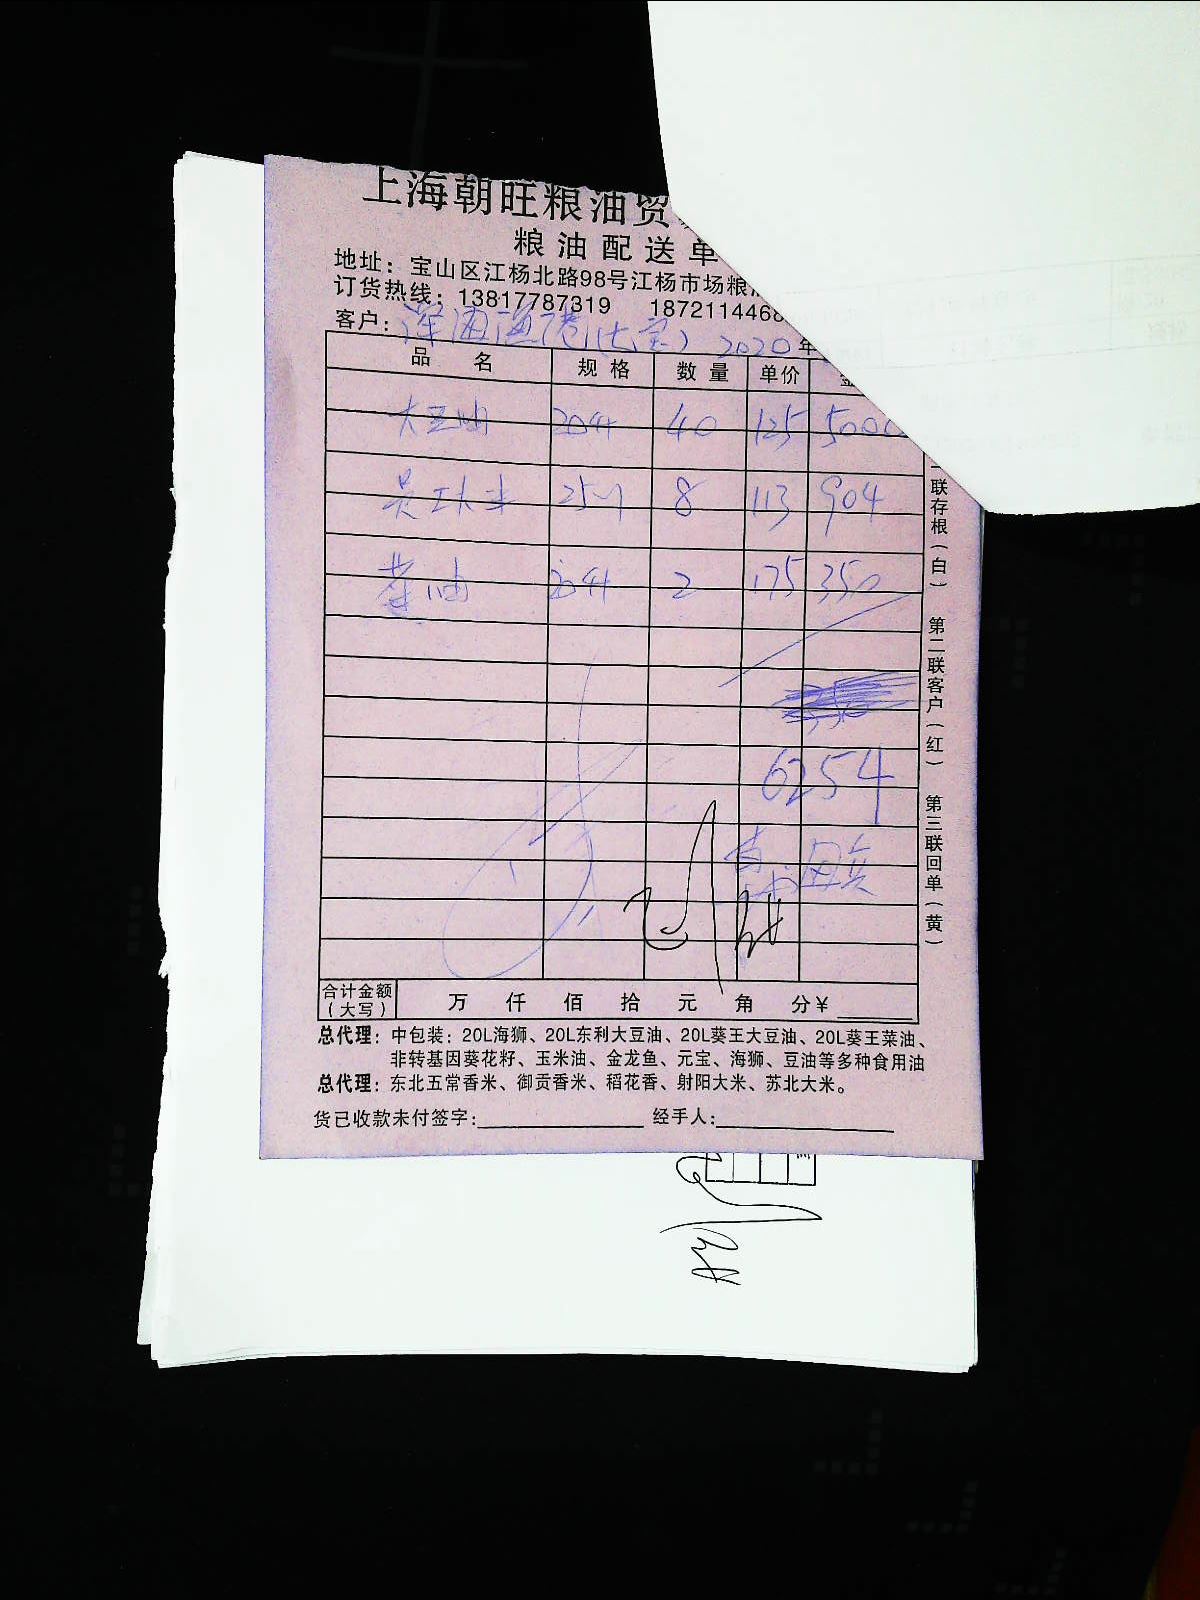 上海朝旺粮油贸
粮油配送单
地址：宝山区江杨北路98号江杨市场粮
订货热线：13817787319 1872114468
客户： 2020年
品名 规格 数量 单价
大豆油 20升 40 125 5000
大米 25 8 113 904
菜油 20升 2 175 350
6254
合计金额（大写） 万 仟 佰 拾 元 角 分￥
总代理：中包装：20L海狮、20L东利大豆油、20L葵王大豆油、20L葵王菜油、
非转基因葵花籽、玉米油、金龙鱼、元宝、海狮、豆油等多种食用油
总代理：东北五常香米、御贡香米、稻花香、射阳大米、苏北大米。
货已收款未付签字： 经手人：
联存根（白） 第二联客户（红） 第三联回单（黄）